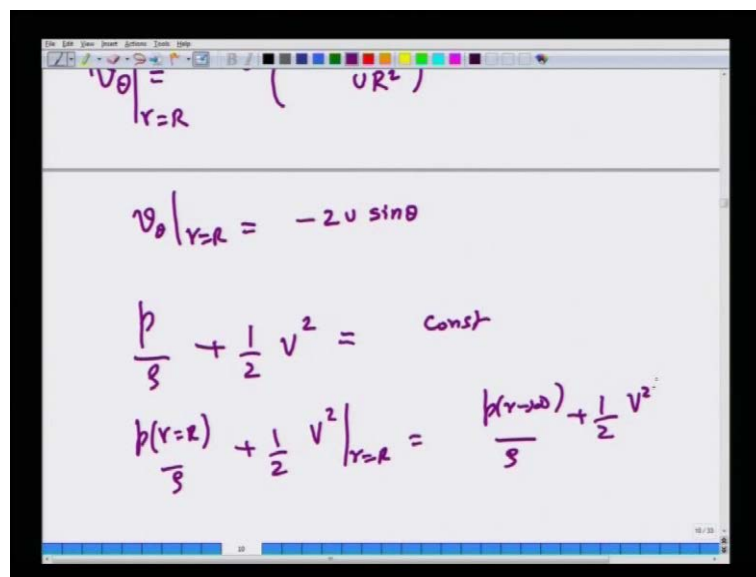 File Edit View Insert Actions Tools Help
Vθ|r=R = ( UR² )
vθ|r=R = - 2U sinθ
p/ρ + 1/2 v² = const
p(r=R)/ρ + 1/2 V²|r=R = p(r→∞)/ρ + 1/2 V²
10